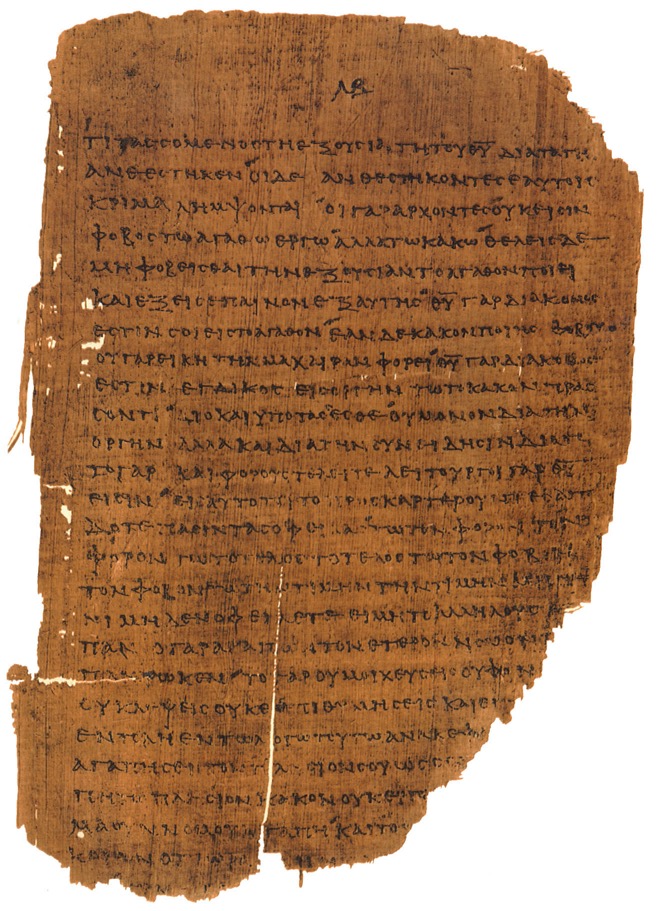 ΤΙΤΑϹϹΟΜΕΝΟϹΤΗΕΞΟΥϹΙΑ ΤΗΤΟΥΘ̅Υ̅ ΔΙΑΤΑΓΗ
ΑΝΘΕϹΤΗΚΕΝ ΟΙΔΕ ΑΝΘΕϹΤΗΚΟΝΤΕϹΕΑΥΤΟΙϹ
ΚΡΙΜΑ ΛΗΜΨΟΝΤΑΙ ΟΙΓΑΡΑΡΧΟΝΤΕϹΟΥΚΕΙϹΙΝ
ΦΟΒΟϹΤΩΑΓΑΘΩΕΡΓΩ ΑΛΛΑΤΩΚΑΚΩ ΘΕΛΕΙϹΔΕ
ΜΗΦΟΒΕΙϹΘΑΙΤΗΝΕΞΟΥϹΙΑΝΤΟΑΓΑΘΟΝΠΟΙΕΙ
ΚΑΙΕΞΕΙϹΕΠΑΙΝΟΝΕΞΑΥΤΗϹ Θ̅Υ̅ ΓΑΡΔΙΑΚΟΝΟϹ
ΕϹΤΙΝϹΟΙΕΙϹΤΟΑΓΑΘΟΝ ΕΑΝΔΕΚΑΚΟΝΠΟΙΗϹ ΦΟΒΟΥ
ΟΥΓΑΡΕΙΚΗΤΗΝΜΑΧΑΙΡΑΝΦΟΡΕΙ Θ̅Υ̅ ΓΑΡΔΙΑΚΟΝΟϹ
ΕϹΤΙΝ ΕΓΔΙΚΟϹ ΕΙϹΟΡΓΗΝ ΤΩΤΟΚΑΚΟΝΠΡΑϹ
ϹΟΝΤΙ ΔΙΟΚΑΙΥΠΟΤΑϹϹΕϹΘΕ ΟΥΜΟΝΟΝΔΙΑΤΗΝ
ΟΡΓΗΝ ΑΛΛΑΚΑΙΔΙΑΤΗΝϹΥΝΕΙΔΗϹΙΝ ΔΙΑΤΟΥ
ΤΟΓΑΡ ΚΑΙΦΟΡΟΥϹΤΕΛΕΙΤΕ ΛΕΙΤΟΥΡΓΟΙΓΑΡΘ̅Υ̅
ΕΙϹΙΝ ΕΙϹΑΥΤΟΤΟΥΤΟ ΠΡΟϹΚΑΡΤΕΡΟΥΝΤΕϹ
ΔΟΤΕ ΠΑϹΙΝΤΑϹΟΦΕΙΛΑϹ ΤΩΤΟΝΦΟΡΟΝ ΤΟΝ
ΦΟΡΟΝ ΤΩΤΟΤΕΛΟϹ ΤΟΤΕΛΟϹ ΤΩΤΟΝΦΟΒΟΝ
ΤΟΝΦΟΒΟΝ ΤΩΤΗΝΤΙΜΗΝ ΤΗΝΤΙΜΗΝ ΜΗΔΕ
ΝΙΜΗΔΕΝΟΦΕΙΛΕΤΕ ΕΙΜΗΤΟΑΛΛΗΛΟΥϹ Α
ΓΑΠΑΝ ΟΓΑΡΑΓΑΠΩΝΤΟΝΕΤΕΡΟΝΝΟΜΟΝ
ΠΕΠΛΗΡΩΚΕΝ ΤΟΓΑΡΟΥΜΟΙΧΕΥϹΕΙϹ ΟΥΦΟΝ
ΟΥΚΛΕΨΕΙϹ ΟΥΚΕΠΙΘΥΜΗϹΕΙϹ ΚΑΙΕΙ
ΕΝΤΟΛΗ ΕΝΤΩΛΟΓΩΤΟΥΤΩΑΝΑΚΕ
ΑΓΑΠΗϹΕΙϹΤΟΝΠΛΗϹΙΟΝϹΟΥΩϹ
ΠΗΤΩΠΛΗϹΙΟΝΚΑΚΟΝΟΥΚΕΡΓ
ΜΑΟΥΝΝΟΜΟΥΗΑΓΑΠΗ ΚΑΙΤΟΥ